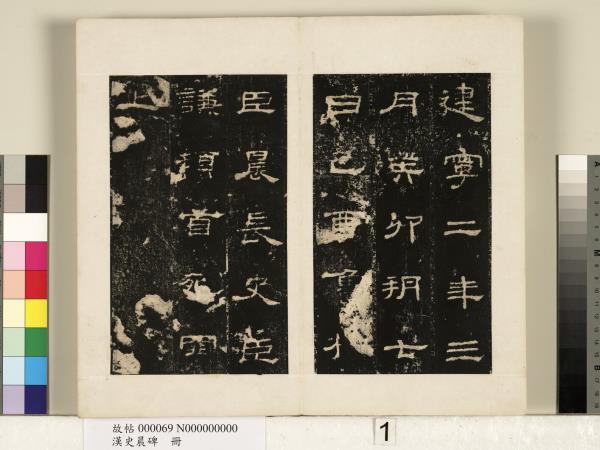 建寧二年三
月癸卯朔七
日己酉
臣晨長史臣
謙頓首死罪
上
故帖 000069 N000000000
漢史晨碑 冊
1